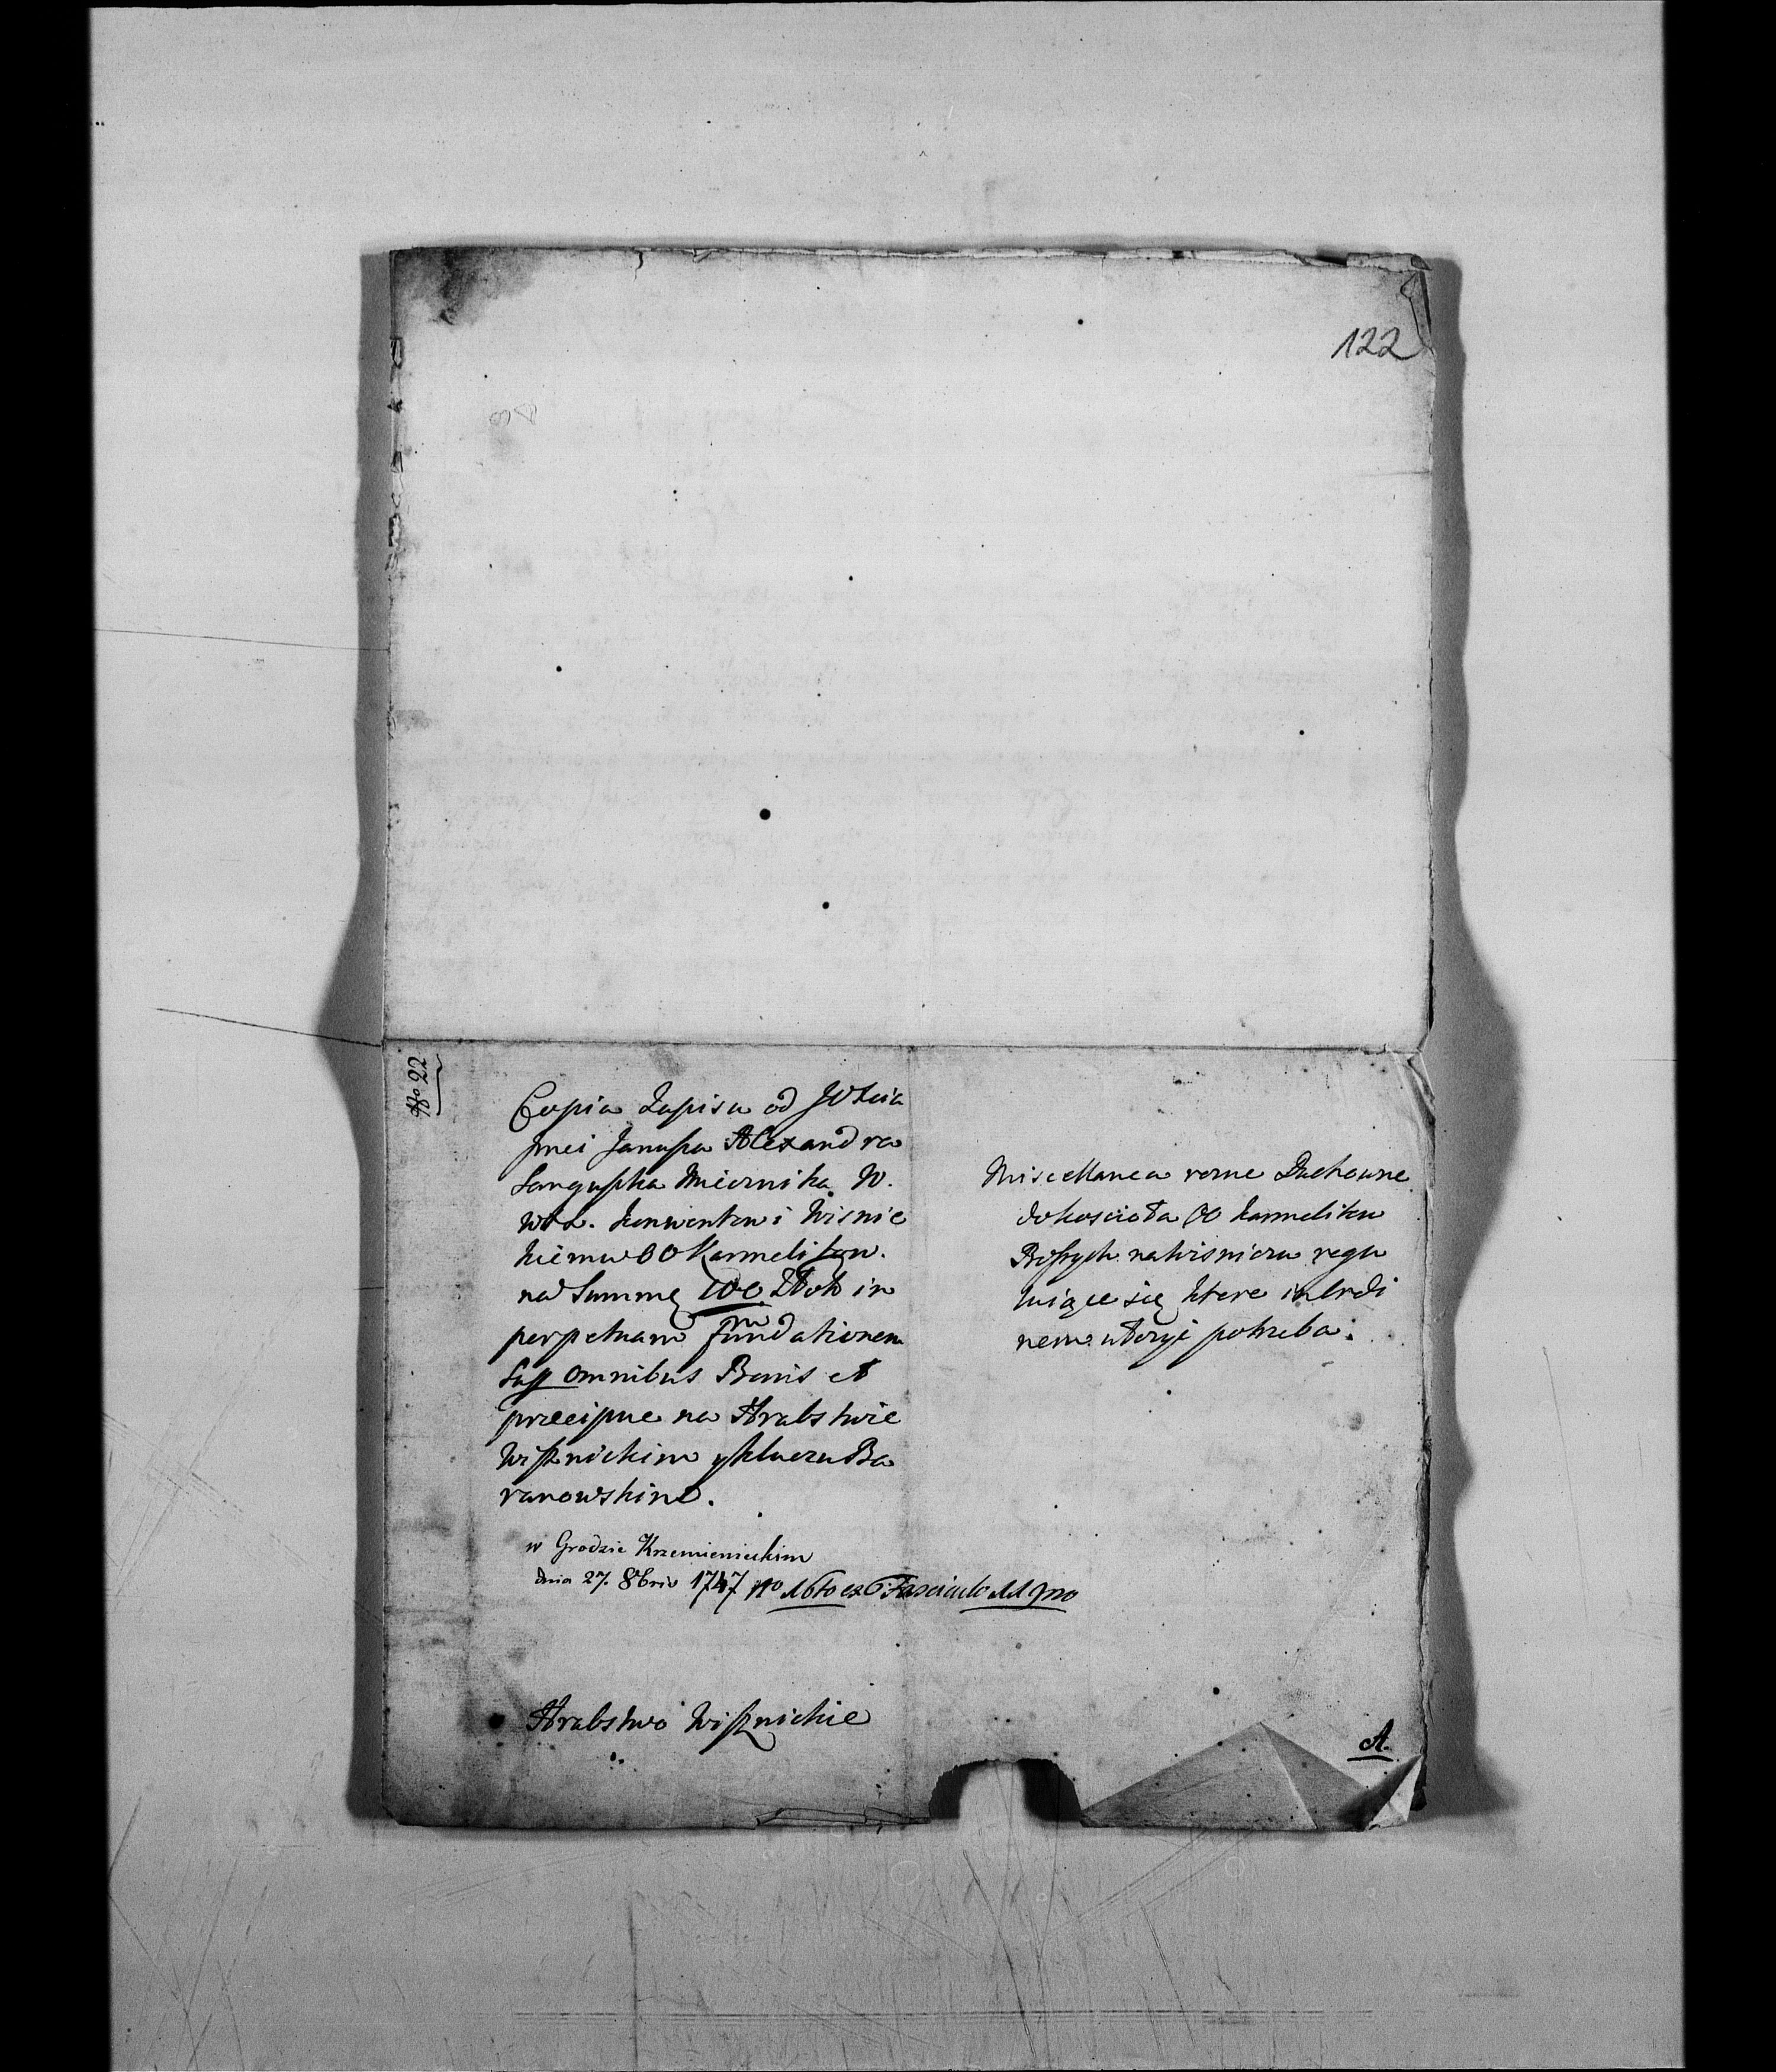 122
No 22
Copia Zapisu od JOXcia
Jmci Janusza Alexandra
Sanguszka Miecznika W.
WXL. Konwentowi Wisnic
kiemu OO Karmelitow.
na Summę 100 Złoto in
perpetuam fundationem
Sup Omnibus Bonis et
precipue na Hrabstwie
Wisznickim y Kluczu Ba
ranowskim.
w Grodzie Krzemienieckim
dnia 27. 8bris 1747 No 16to ex Fasciculo
Hrabstwo Wisznickie
Miscellanea rozne Duchowne
do koscioła OO Karmelitow
Bossych na Wisniczu regu
luiące się ktore in Ordi
nem ułozyć potrzeba.
A.